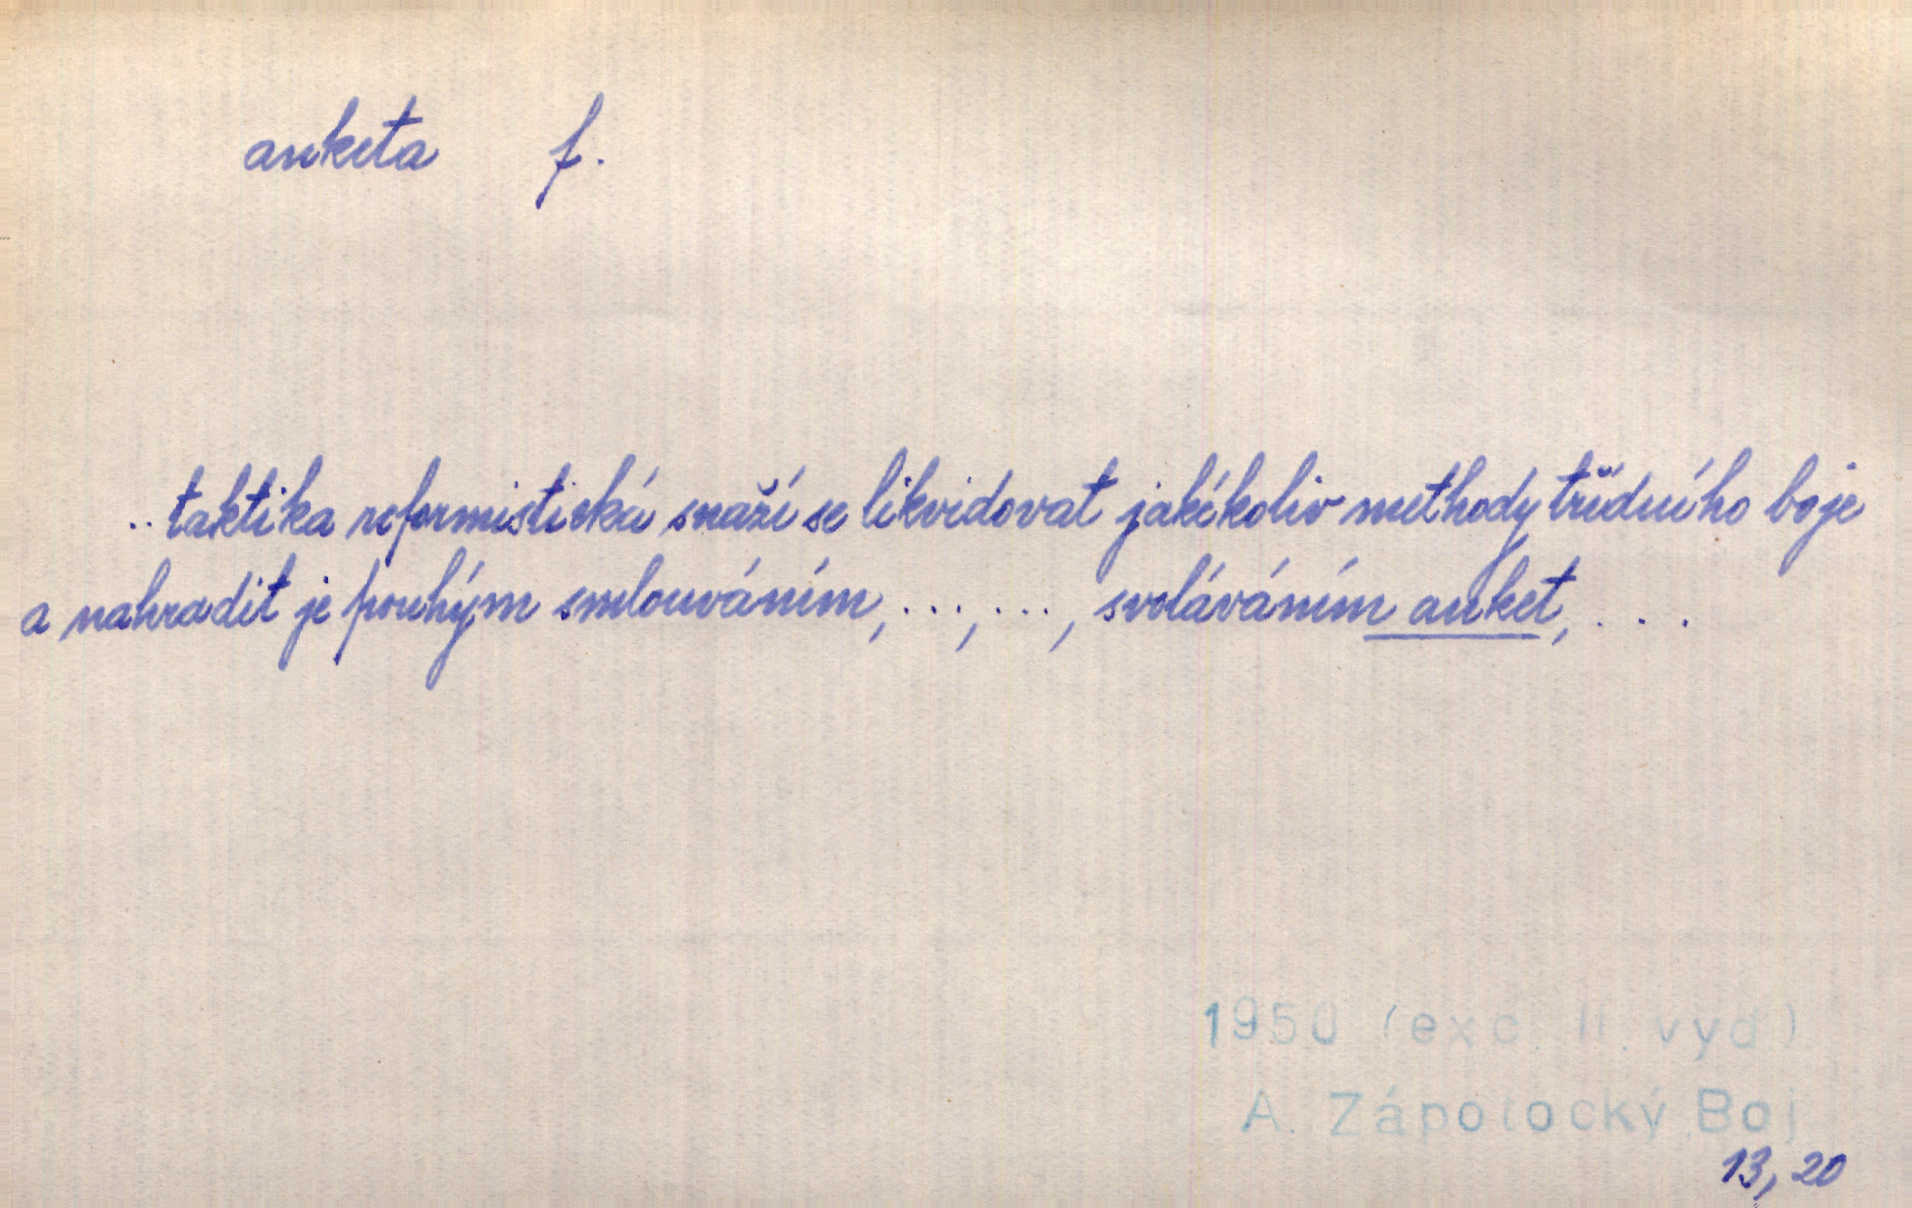 anketa f.
..taktika reformistická snaží se likvidovat jakékoliv methody třídního boje
a nahradit je pouhým smlouváním, ..., ..., svoláváním anket, ...
1950 (exc. II. vyd)
A. Zápotocký, Boj
13, 20